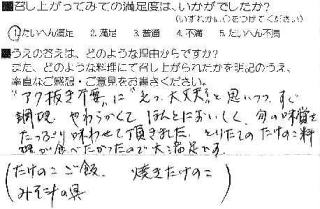 ■召し上がってみての満足度は、いかがでしたか?
(いずれかに○をつけてください)
1.たいへん満足 2.満足 3.普通 4.不満 5.たいへん不満
■うえの答えは、どのような理由からですか?
また、どのような料理にて召し上がられたかを明記のうえ、
率直なご感想・ご意見をお書きください。
"アク抜き不要"に"えっ、大丈夫"と思いつつ、すぐ
調理、やわらかくて ほんとにおいしく、旬の味覚を
たっぷり味わわせて頂きました。とりたてのたけのこ料
理が食べたかったので大満足です。
(たけのこご飯、 焼きたけのこ
みそ汁の具)